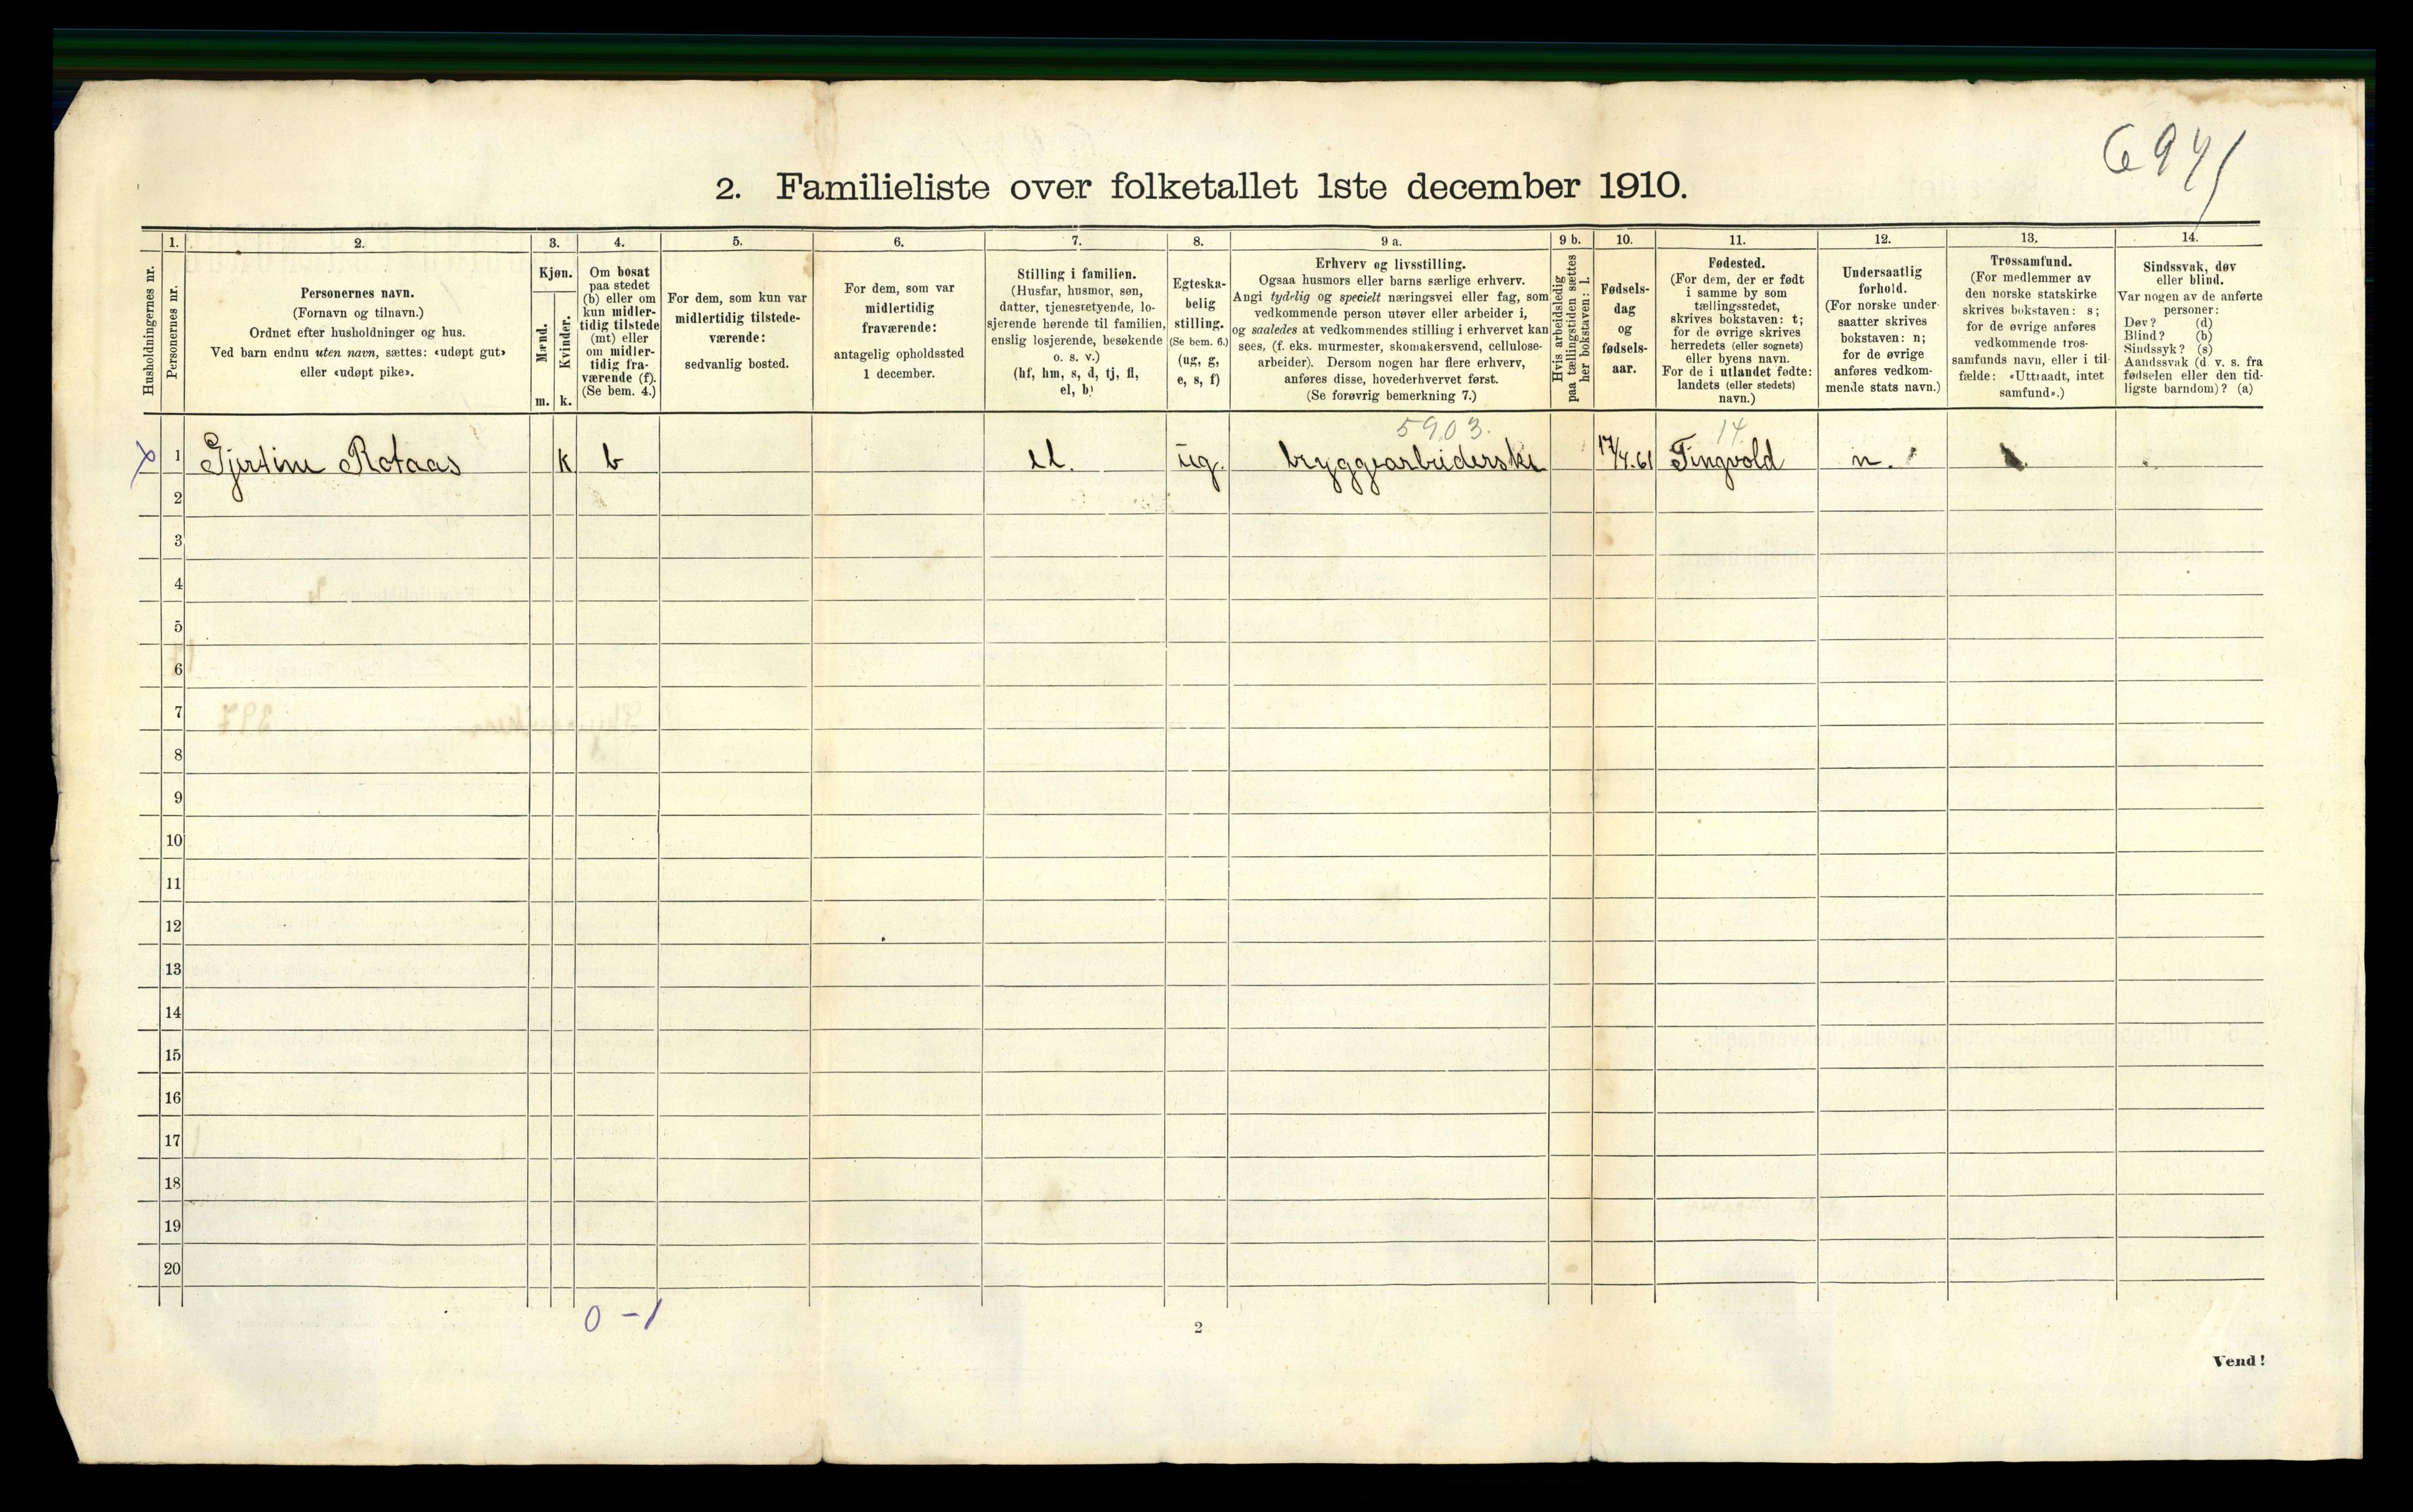 694
2. Familieliste over folketallet 1ste december 1910.
1. 2. 3. 4. 5. 6. 7. 8. 9 a. 9 b. 10. 11. 12. 13. 14.
Husholdningernes nr.
Personernes nr.
Personernes navn.
(Fornavn og tilnavn.)
Ordnet efter husholdninger og hus.
Ved barn endnu uten navn, sættes: «udøpt gut»
eller «udøpt pike».
Kjøn.
Mænd.
m.
Kvinder.
k.
Om bosat
paa stedet
(b) eller om
kun midler-
tidig tilstede
(mt) eller
om midler-
tidig fra-
værende (f).
(Se bem. 4.)
For dem, som kun var
midlertidig tilstede-
værende:
sedvanlig bosted.
For dem, som var
midlertidig
fraværende:
antagelig opholdssted
1 december.
Stilling i familien.
(Husfar, husmor, søn,
datter, tjenestetyende, lo-
sjerende hørende til familien,
enslig losjerende, besøkende
o. s. v.)
(hf, hm, s, d, tj, fl,
el, b)
Egteska-
belig
stilling.
(Se bem. 6.)
(ug, g,
e, s, f)
Erhverv og livsstilling.
Ogsaa husmors eller barns særlige erhverv.
Angi tydelig og specielt næringsvei eller fag, som
vedkommende person utøver eller arbeider i,
og saaledes at vedkommendes stilling i erhvervet kan
sees, (f. eks. murmester, skomakersvend, cellulose-
arbeider). Dersom nogen har flere erhverv,
anføres disse, hovederhvervet først.
(Se forøvrig bemerkning 7.)
Hvis arbeidsledig
paa tællingstiden sættes
her bokstaven: l.
Fødsels-
dag
og
fødsels-
aar.
Fødested.
(For dem, der er født
i samme by som
tællingsstedet,
skrives bokstaven: t;
for de øvrige skrives
herredets (eller sognets)
eller byens navn.
For de i utlandet fødte:
landets (eller stedets)
navn.)
Undersaatlig
forhold.
(For norske under-
saatter skrives
bokstaven: n;
for de øvrige
anføres vedkom-
mende stats navn.)
Trossamfund.
(For medlemmer av
den norske statskirke
skrives bokstaven: s;
for de øvrige anføres
vedkommende tros-
samfunds navn, eller i til-
fælde: «Uttraadt, intet
samfund».)
Sindssvak, døv
eller blind.
Var nogen av de anførte
personer:
Døv? (d)
Blind? (b)
Sindssyk? (s)
Aandssvak (d. v. s. fra
fødselen eller den tid-
ligste barndom)? (a)
5903. 14
1 Gjertine Rotaas k b el. ug. bryggearbeiderske 17/4.61 Tingvold n.
2
3
4
5
6
7
8
9
10
11
12
13
14
15
16
17
18
19
20
0 - 1
2
Vend!